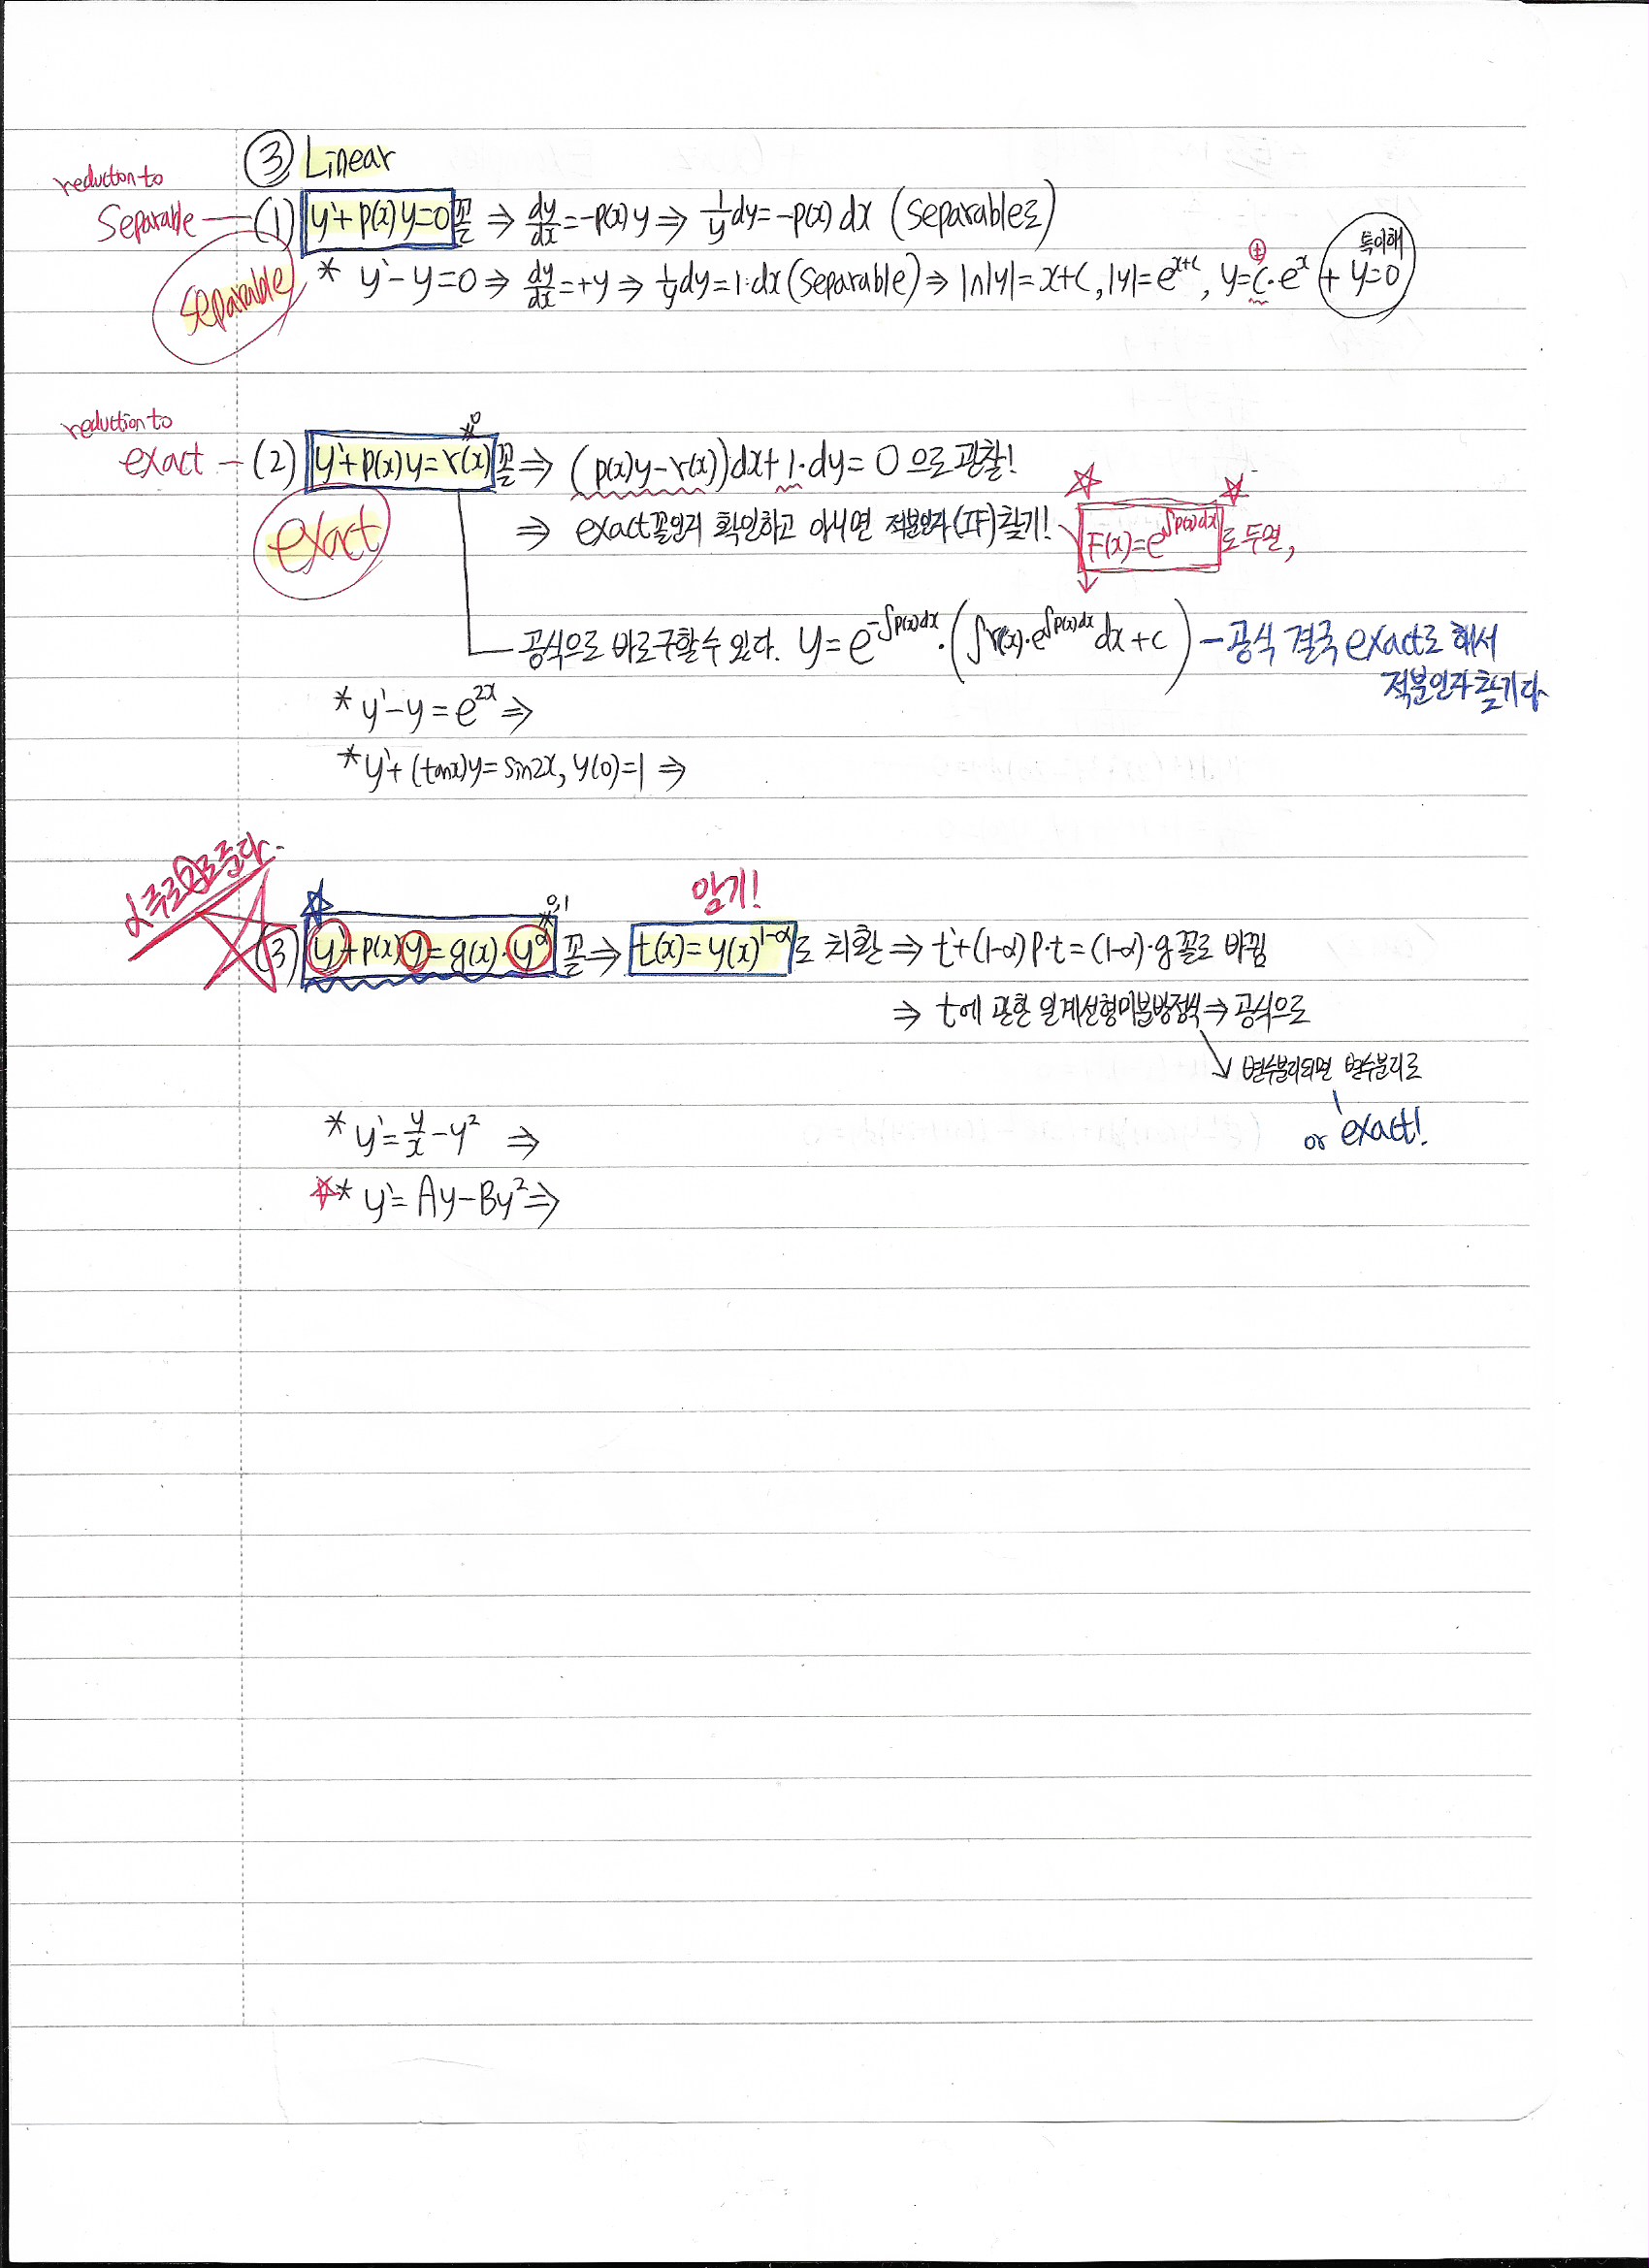 ③ Linear
reduction to
Separable — (1) y'+p(x)y=0 꼴 ⇒ dy/dx=-p(x)y ⇒ 1/y dy=-p(x)dx (Separable로)
separable
* y'-y=0 ⇒ dy/dx=+y ⇒ 1/y dy=1·dx (Separable) ⇒ ln|y|=x+c, |y|=e^{x+c}, y=c·e^x + y=0
±
특이해
reduction to
exact — (2) y'+p(x)y=r(x) 꼴 ⇒ (p(x)y-r(x))dx+1·dy=0 으로 관찰!
exact
⇒ exact꼴인지 확인하고 아니면 적분인자(IF)찾기! F(x)=e^{∫p(x)dx} 로 두면,
공식으로 바로구할수 있다. y=e^{-∫p(x)dx}·(∫r(x)·e^{∫p(x)dx}dx+c) - 공식 결국 exact로 해서
적분인자 찾기다
* y'-y=e^{2x} ⇒
* y'+(tanx)y=sin2x, y(0)=1 ⇒
암기!
0,1
(3) y'+p(x)y=g(x)·y^α 꼴 ⇒ t(x)=y(x)^{1-α} 로 치환 ⇒ t'+(1-α)p·t=(1-α)·g 꼴로 바뀜
⇒ t에 관한 일계선형미분방정식 → 공식으로
변수분리되면 변수분리로
or exact!
* y'=y/x-y² ⇒
* y'=Ay-By² ⇒